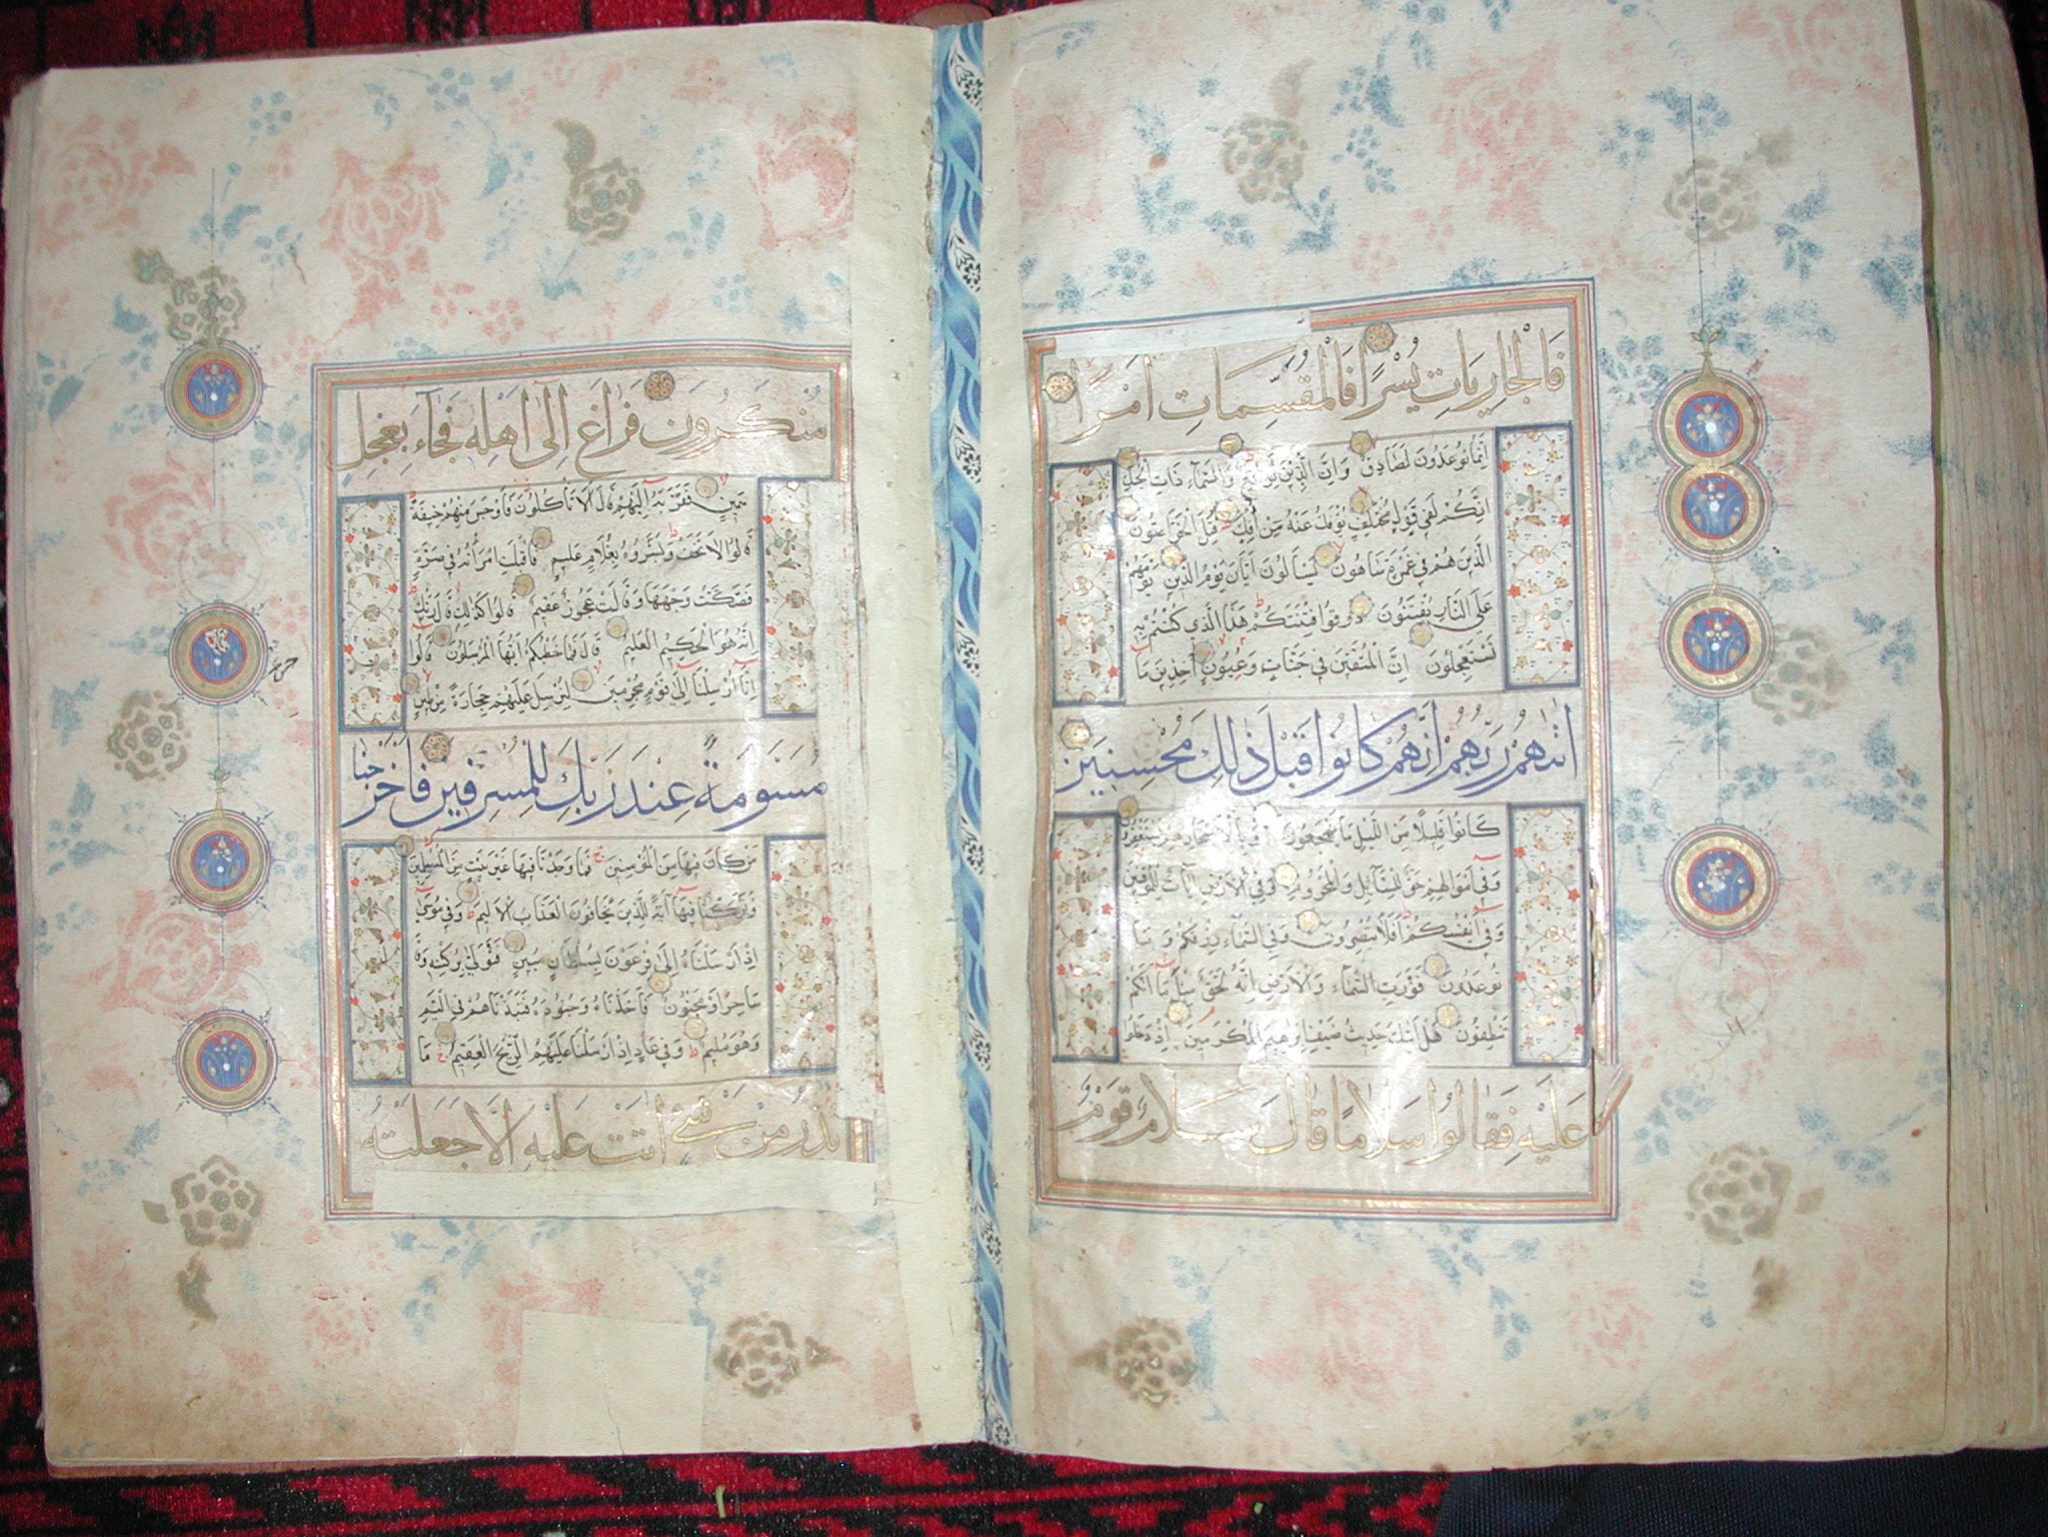 فَالْجَارِيَاتِ يُسْرًا فَالْمُقَسِّمَاتِ أَمْرًا
إِنَّمَا تُوعَدُونَ لَصَادِقٌ وَإِنَّ الدِّينَ لَوَاقِعٌ وَالسَّمَاءِ ذَاتِ الْحُبُكِ
إِنَّكُمْ لَفِي قَوْلٍ مُخْتَلِفٍ يُؤْفَكُ عَنْهُ مَنْ أُفِكَ قُتِلَ الْخَرَّاصُونَ
الَّذِينَ هُمْ فِي غَمْرَةٍ سَاهُونَ يَسْأَلُونَ أَيَّانَ يَوْمُ الدِّينِ يَوْمَ هُمْ
عَلَى النَّارِ يُفْتَنُونَ ذُوقُوا فِتْنَتَكُمْ هَذَا الَّذِي كُنْتُمْ بِهِ
تَسْتَعْجِلُونَ إِنَّ الْمُتَّقِينَ فِي جَنَّاتٍ وَعُيُونٍ آخِذِينَ مَا
اٰتٰهُمْ رَبُّهُمْ إِنَّهُمْ كَانُوا قَبْلَ ذَلِكَ مُحْسِنِينَ
كَانُوا قَلِيلًا مِنَ اللَّيْلِ مَا يَهْجَعُونَ وَبِالْأَسْحَارِ هُمْ يَسْتَغْفِرُونَ
وَفِي أَمْوَالِهِمْ حَقٌّ لِلسَّائِلِ وَالْمَحْرُومِ وَفِي الْأَرْضِ آيَاتٌ لِلْمُوقِنِينَ
وَفِي أَنْفُسِكُمْ أَفَلَا تُبْصِرُونَ وَفِي السَّمَاءِ رِزْقُكُمْ وَمَا
تُوعَدُونَ فَوَرَبِّ السَّمَاءِ وَالْأَرْضِ إِنَّهُ لَحَقٌّ مِثْلَ مَا أَنَّكُمْ
تَنْطِقُونَ هَلْ أَتٰيكَ حَدِيثُ ضَيْفِ إِبْرٰهِيمَ الْمُكْرَمِينَ إِذْ دَخَلُوا
عَلَيْهِ فَقَالُوا سَلَامًا قَالَ سَلَامٌ قَوْمٌ
مُنْكَرُونَ فَرَاغَ إِلَى أَهْلِهِ فَجَاءَ بِعِجْلٍ
سَمِينٍ فَقَرَّبَهُ إِلَيْهِمْ قَالَ أَلَا تَأْكُلُونَ فَأَوْجَسَ مِنْهُمْ خِيفَةً
قَالُوا لَا تَخَفْ وَبَشَّرُوهُ بِغُلَامٍ عَلِيمٍ فَأَقْبَلَتِ امْرَأَتُهُ فِي صَرَّةٍ
فَصَكَّتْ وَجْهَهَا وَقَالَتْ عَجُوزٌ عَقِيمٌ قَالُوا كَذَلِكِ قَالَ رَبُّكِ
إِنَّهُ هُوَ الْحَكِيمُ الْعَلِيمُ قَالَ فَمَا خَطْبُكُمْ أَيُّهَا الْمُرْسَلُونَ قَالُوا
إِنَّا أُرْسِلْنَا إِلَى قَوْمٍ مُجْرِمِينَ لِنُرْسِلَ عَلَيْهِمْ حِجَارَةً مِنْ طِينٍ
مُسَوَّمَةً عِنْدَ رَبِّكَ لِلْمُسْرِفِينَ فَأَخْرَجْنَا
مَنْ كَانَ فِيهَا مِنَ الْمُؤْمِنِينَ فَمَا وَجَدْنَا فِيهَا غَيْرَ بَيْتٍ مِنَ الْمُسْلِمِينَ
وَتَرَكْنَا فِيهَا آيَةً لِلَّذِينَ يَخَافُونَ الْعَذَابَ الْأَلِيمَ وَفِي مُوسَى
إِذْ أَرْسَلْنَاهُ إِلَى فِرْعَوْنَ بِسُلْطَانٍ مُبِينٍ فَتَوَلَّى بِرُكْنِهِ وَقَالَ
سَاحِرٌ أَوْ مَجْنُونٌ فَأَخَذْنَاهُ وَجُنُودَهُ فَنَبَذْنَاهُمْ فِي الْيَمِّ
وَهُوَ مُلِيمٌ وَفِي عَادٍ إِذْ أَرْسَلْنَا عَلَيْهِمُ الرِّيحَ الْعَقِيمَ مَا
تَذَرُ مِنْ شَيْءٍ أَتَتْ عَلَيْهِ إِلَّا جَعَلَتْهُ